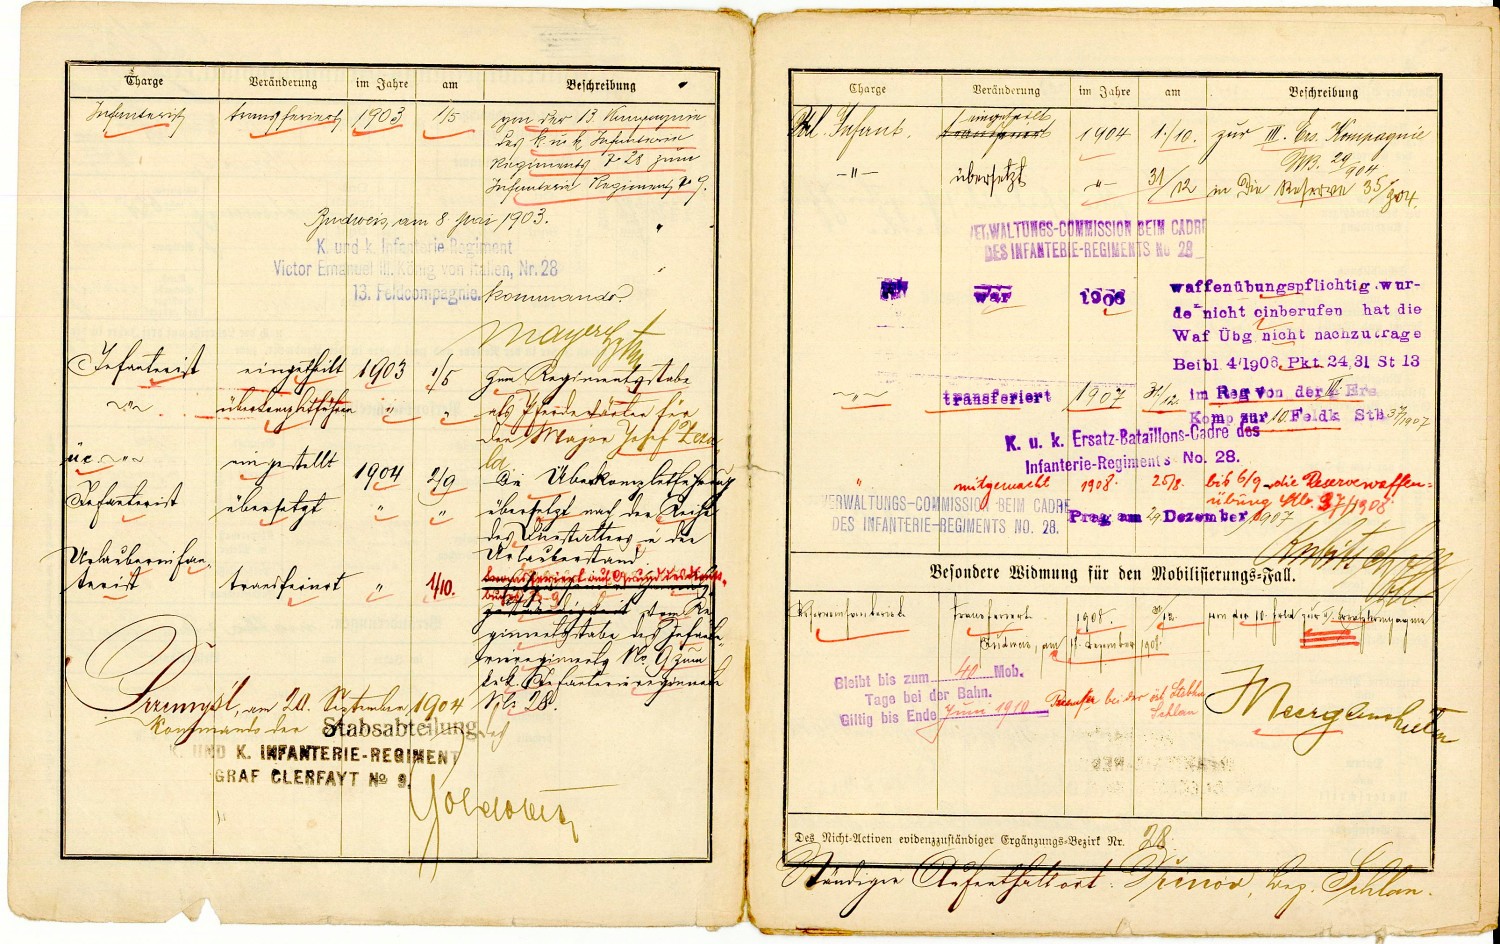 Charge Veränderung im Jahre am Beschreibung
Infanterist transferiert 1903 1/5 von der 13. Kompagnie
des k. u. k. Infanterie
Regiments № 28 zum
Infanterie Regiment № 9.
Budweis, am 8 Mai 1903.
K. und k. Infanterie-Regiment
Victor Emanuel III. König von Italien, Nr. 28
13. Feldcompagnie. kommando.
Mayer
Infanterist eingetheilt 1903 1/5 zum Regimentsstabe
als Pferdewärter für
den Major Josef
eingestellt 1904 2/9 die Überkompletführung
Infanterist übersetzt " " übersetzt nach der Reihe
des in den
Urlauberstand
Urlauberinfan-
terist transferiert " 1/10. transferiert auf Grund des
vom Re-
gimentsstabe des Infante-
rieregiments No 9 zum
k.u.k. Infanterieregimente
Nr. 28.
Przemyśl, am 20. September 1904
Kommando der Stabsabteilung des
K. UND K. INFANTERIE-REGIMENT
GRAF CLERFAYT № 9.
Charge Veränderung im Jahre am Beschreibung
Url. Infant. eingeteilt 1904 1./10. zur III. Ers. Kompagnie
MB. 29/904
—"— übersetzt —"— 31/12 in die Reserve 35/904.
VERWALTUNGS-COMMISSION BEIM CADRE
DES INFANTERIE-REGIMENTS No 28
war 1906 waffenübungspflichtig wur-
de nicht einberufen hat die
Waf Übg nicht nachzutrage
Beibl 4/1906 Pkt 24,31 St 13
—"— transferiert 1907 31/12. im Reg von der III Ers
Komp zur 10. Feldk StB 37/1907
K. u. k. Ersatz-Bataillons-Cadre des
Infanterie-Regiments No. 28.
" mitgemacht 1908. 25/8. bis 6/9 die Reservewaffen-
übung 37/1908
VERWALTUNGS-COMMISSION BEIM CADRE
DES INFANTERIE-REGIMENTS NO. 28.
Prag am 24 Dezember 1907
Besondere Widmung für den Mobilisierungs-Fall.
Reserveinfanterist transferiert 1908. 31/12. von der 10. Feld zur Ersatzkompagnie
Budweis, am Dezember 1908.
Bleibt bis zum 40 Mob.
Tage bei der Bahn.
Giltig bis Ende Juni 1910 bei der
Schlan
Des Nicht-Activen evidenzzuständiger Ergänzungs-Bezirk Nr. 28
Ständiger Aufenthaltsort: Bez. Schlan.